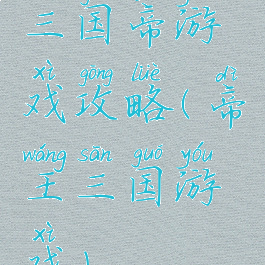 三国帝游
xì gōng lüè dì
戏攻略(帝
wáng sān guó yóu
王三国游
xì
戏)